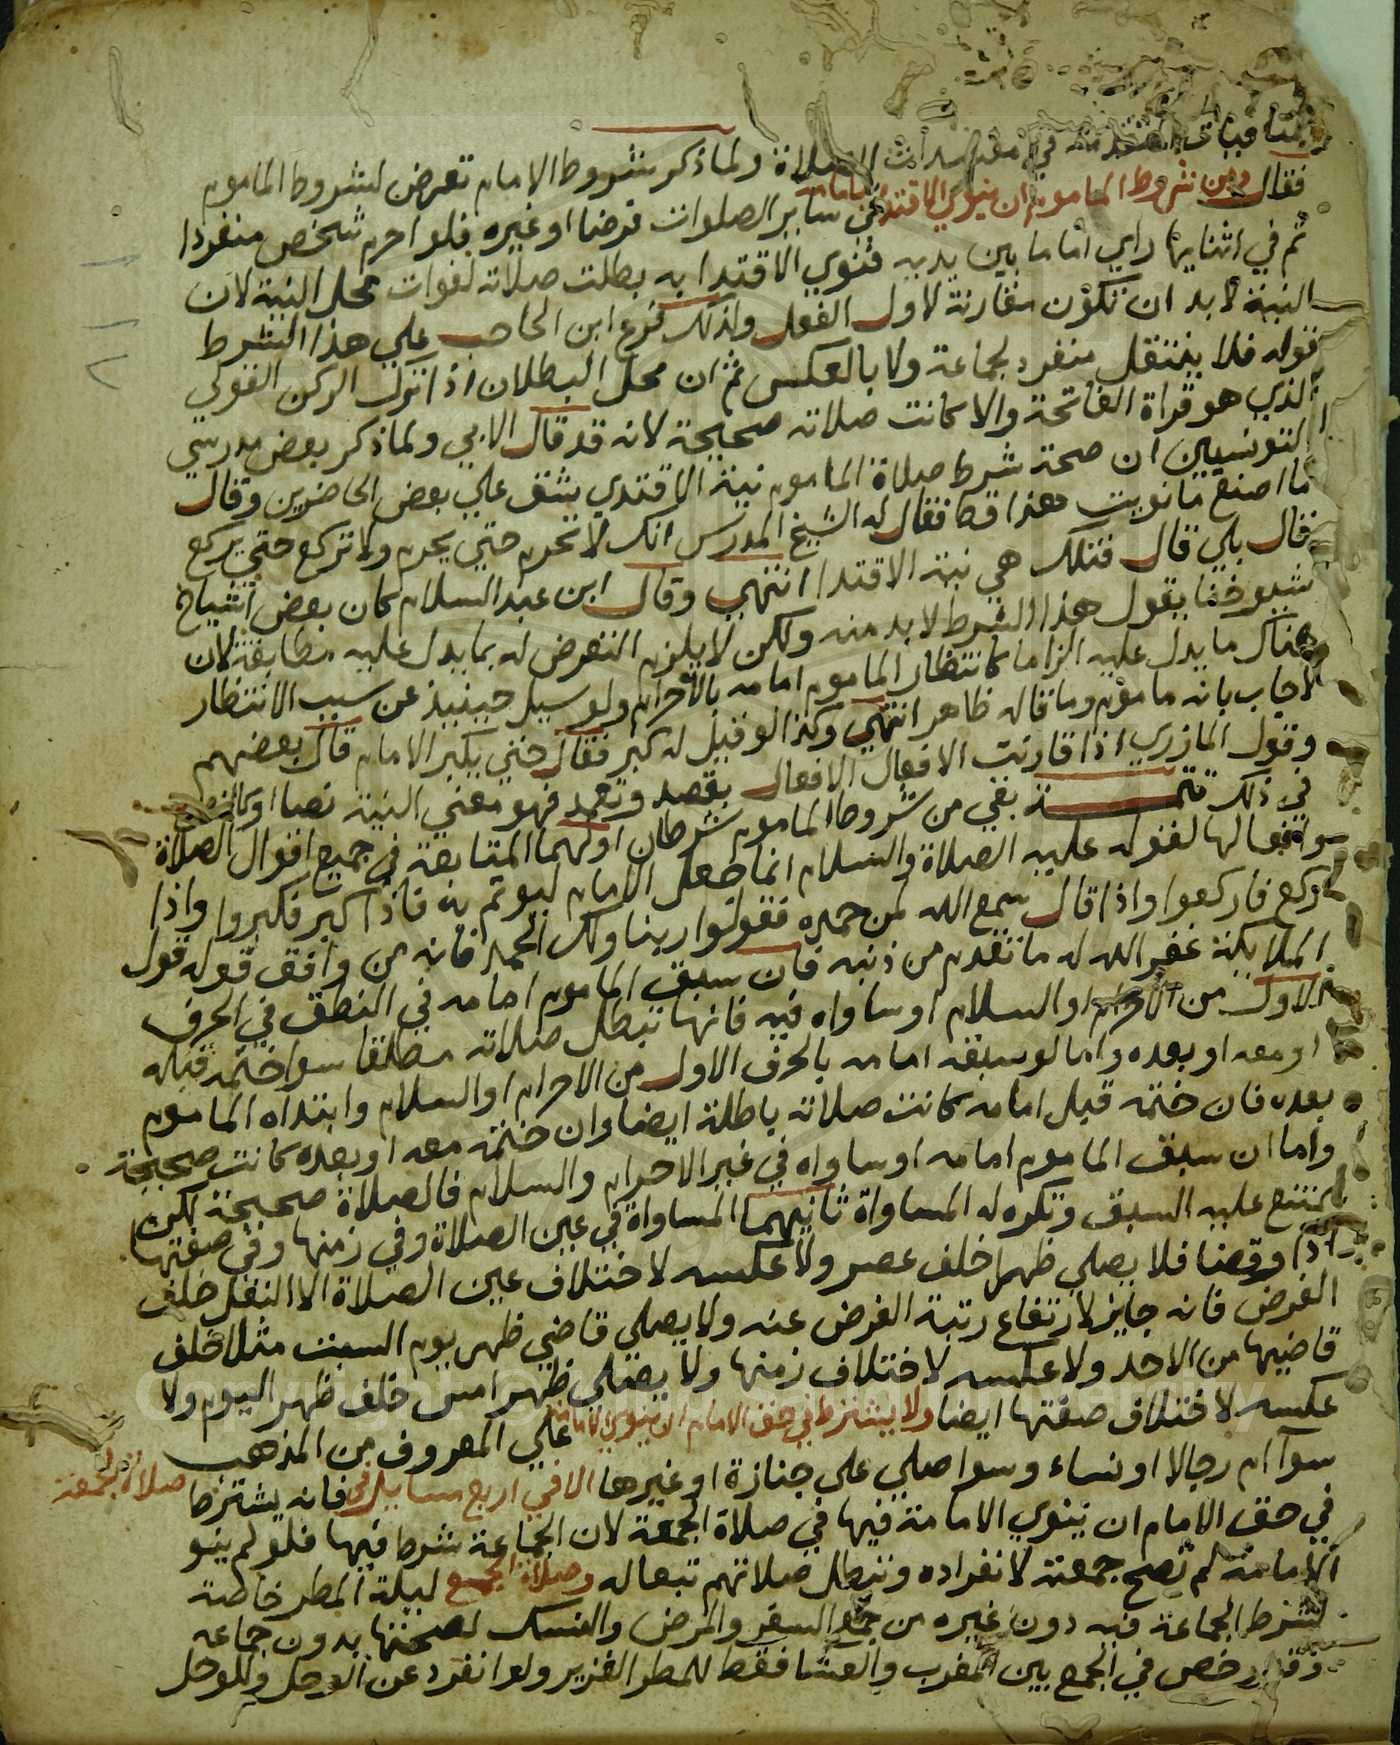 المتقدمة في مفسدات الصلاة ولما ذكر شروط الامام تعرض لشروط الماموم
فقال ومن شروط الماموم ان ينوي الاقتدا بامامه في ساير الصلوات فرضا او غيره فلو احرم شخص منفردا
ثم في اثنايها راي اماما بين يديه فنوي الاقتدا به بطلت صلاته لفوات محل النية لان
النية لابد ان تكون مقارنة لاول الفعل ولذلك فرع ابن الحاجب علي هذا الشرط
قوله فلا ينتقل منفرد لجماعة ولا بالعكس ثم ان محل البطلان اذا ترك الركن القولي
الذي هو قراة الفاتحة والا كانت صلاته صحيحة لانه قد قال الابي ولما ذكر بعض مدرسي
التونسيين ان صحة شرط صلاة الماموم نية الاقتدي شق علي بعض الحاضرين وقال
ما اصنع ما نويت هذا قط فقال له الشيخ المدرس انك لا تحرم حتي يحرم ولا تركع حتي يركع
قال بلي قال فتلك هي نية الاقتدا انتهي وقال ابن عبد السلام كان بعض اشياخ
شيوخنا يقول هذا الشرط لابد منه ولكن لا يلزم التعرض له بما يدل عليه مطابقة لان
هناك ما يدل عليه الزاما كانتظار الماموم امامه بالاحرام ولو سيل حينيذ عن سبب الانتظار
لاجاب بانه ماموم وما قاله ظاهر انتهي وكذا لو قيل له كبر فقال حتي يكبر الامام قال بعضهم
وقول المازري اذا قارنت الافعال الافعال بقصد وتعمد فهو معني النية نصا او
في ذلك تتمة بقي من شروط الماموم شرطان اولهما المتابعة في جميع اقوال الصلاة
وافعالها لقوله عليه الصلاة والسلام انما جعل الامام ليوتم به فاذا كبر فكبروا واذا
ركع فاركعوا واذا قال سمع الله لمن حمده فقولوا ربنا ولك الحمد فانه من وافق قوله قول
الملايكة غفر الله له ما تقدم من ذنبه فان سبق الماموم امامه في النطق في الحرف
الاول من الاحرام او السلام او ساواه فيه فانها تبطل صلاته مطلقا سوا ختمه قبله
او معه او بعده واما لو سبقه امامه بالحرف الاول من الاحرام او السلام وابتداه الماموم
بعده فان ختمه قبل امامه كانت صلاته باطلة ايضا وان ختمه معه او بعده كانت صحيحة
واما ان سبق الماموم امامه او ساواه في غير الاحرام والسلام فالصلاة صحيحة لكن
يمتنع عليه السبق وتكره له المساواة ثانيهما المساواة في عين الصلاة وفي زمنها وفي صفتها
ادا وقضا فلا يصلي ظهرا خلف عصر ولا عكسه لاختلاف عين الصلاة الا النفل خلف
الفرض فانه جايز لارتفاع رتبة الفرض عنه ولا يصلي قاضي ظهر يوم السبت مثلا خلف
قاضيها من الاحد ولا عكسه لاختلاف زمنها ولا يصلي ظهر امس خلف ظهر اليوم ولا
عكسه لاختلاف صفتها ايضا ولا يشترط في حق الامام ان ينوي الامامة علي المعروف من المذهب
سوا ام رجالا او نساء وسوا صلي علي جنازة او غيرها الا في اربع مسايل في صلاة الجمعة فانه يشترط
في حق الامام ان ينوي الامامة فيها في صلاة الجمعة لان الجماعة شرط فيها فلو لم ينو
الامامة لم تصح جمعته لانفراده وتبطل صلاتهم تبعا له وصلاة الجمع ليلة المطر خاصة
لشرط الجماعة فيه دون غيره من جمع السفر والمرض والنسك لصحتها بدون جماعه
وقد رخص في الجمع بين المغرب والعشا فقط للمطر الغزير ولو انفرد عن الوحل وللوحل